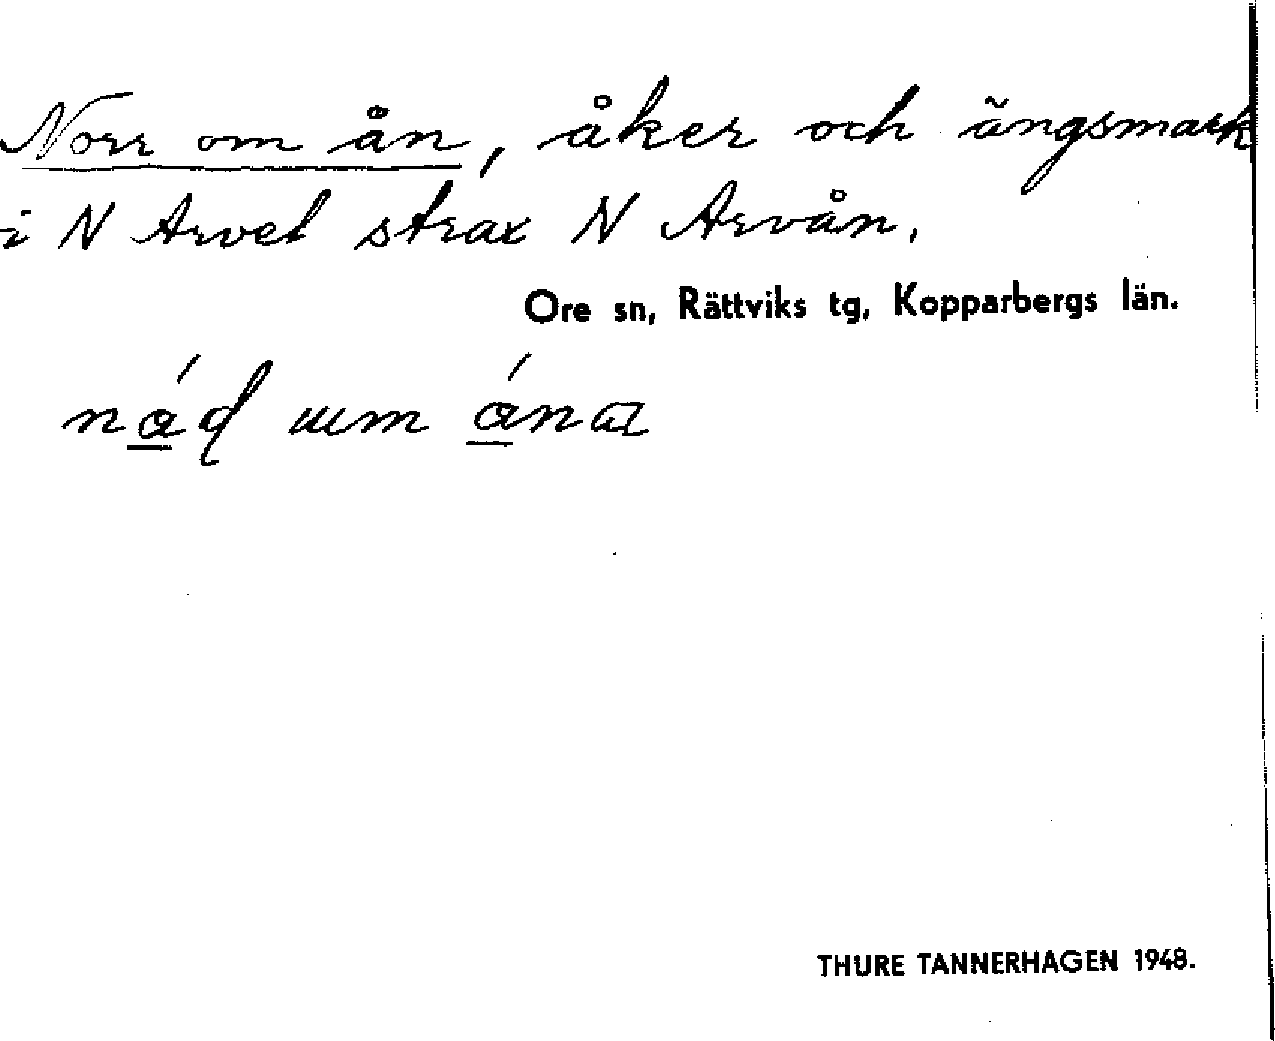 Norr om ån, åker och ängsmark
i N Arvet strax N Arvån.
Ore sn, Rättviks tg, Kopparbergs län.
um
THURE TANNERHAGEN 1948.